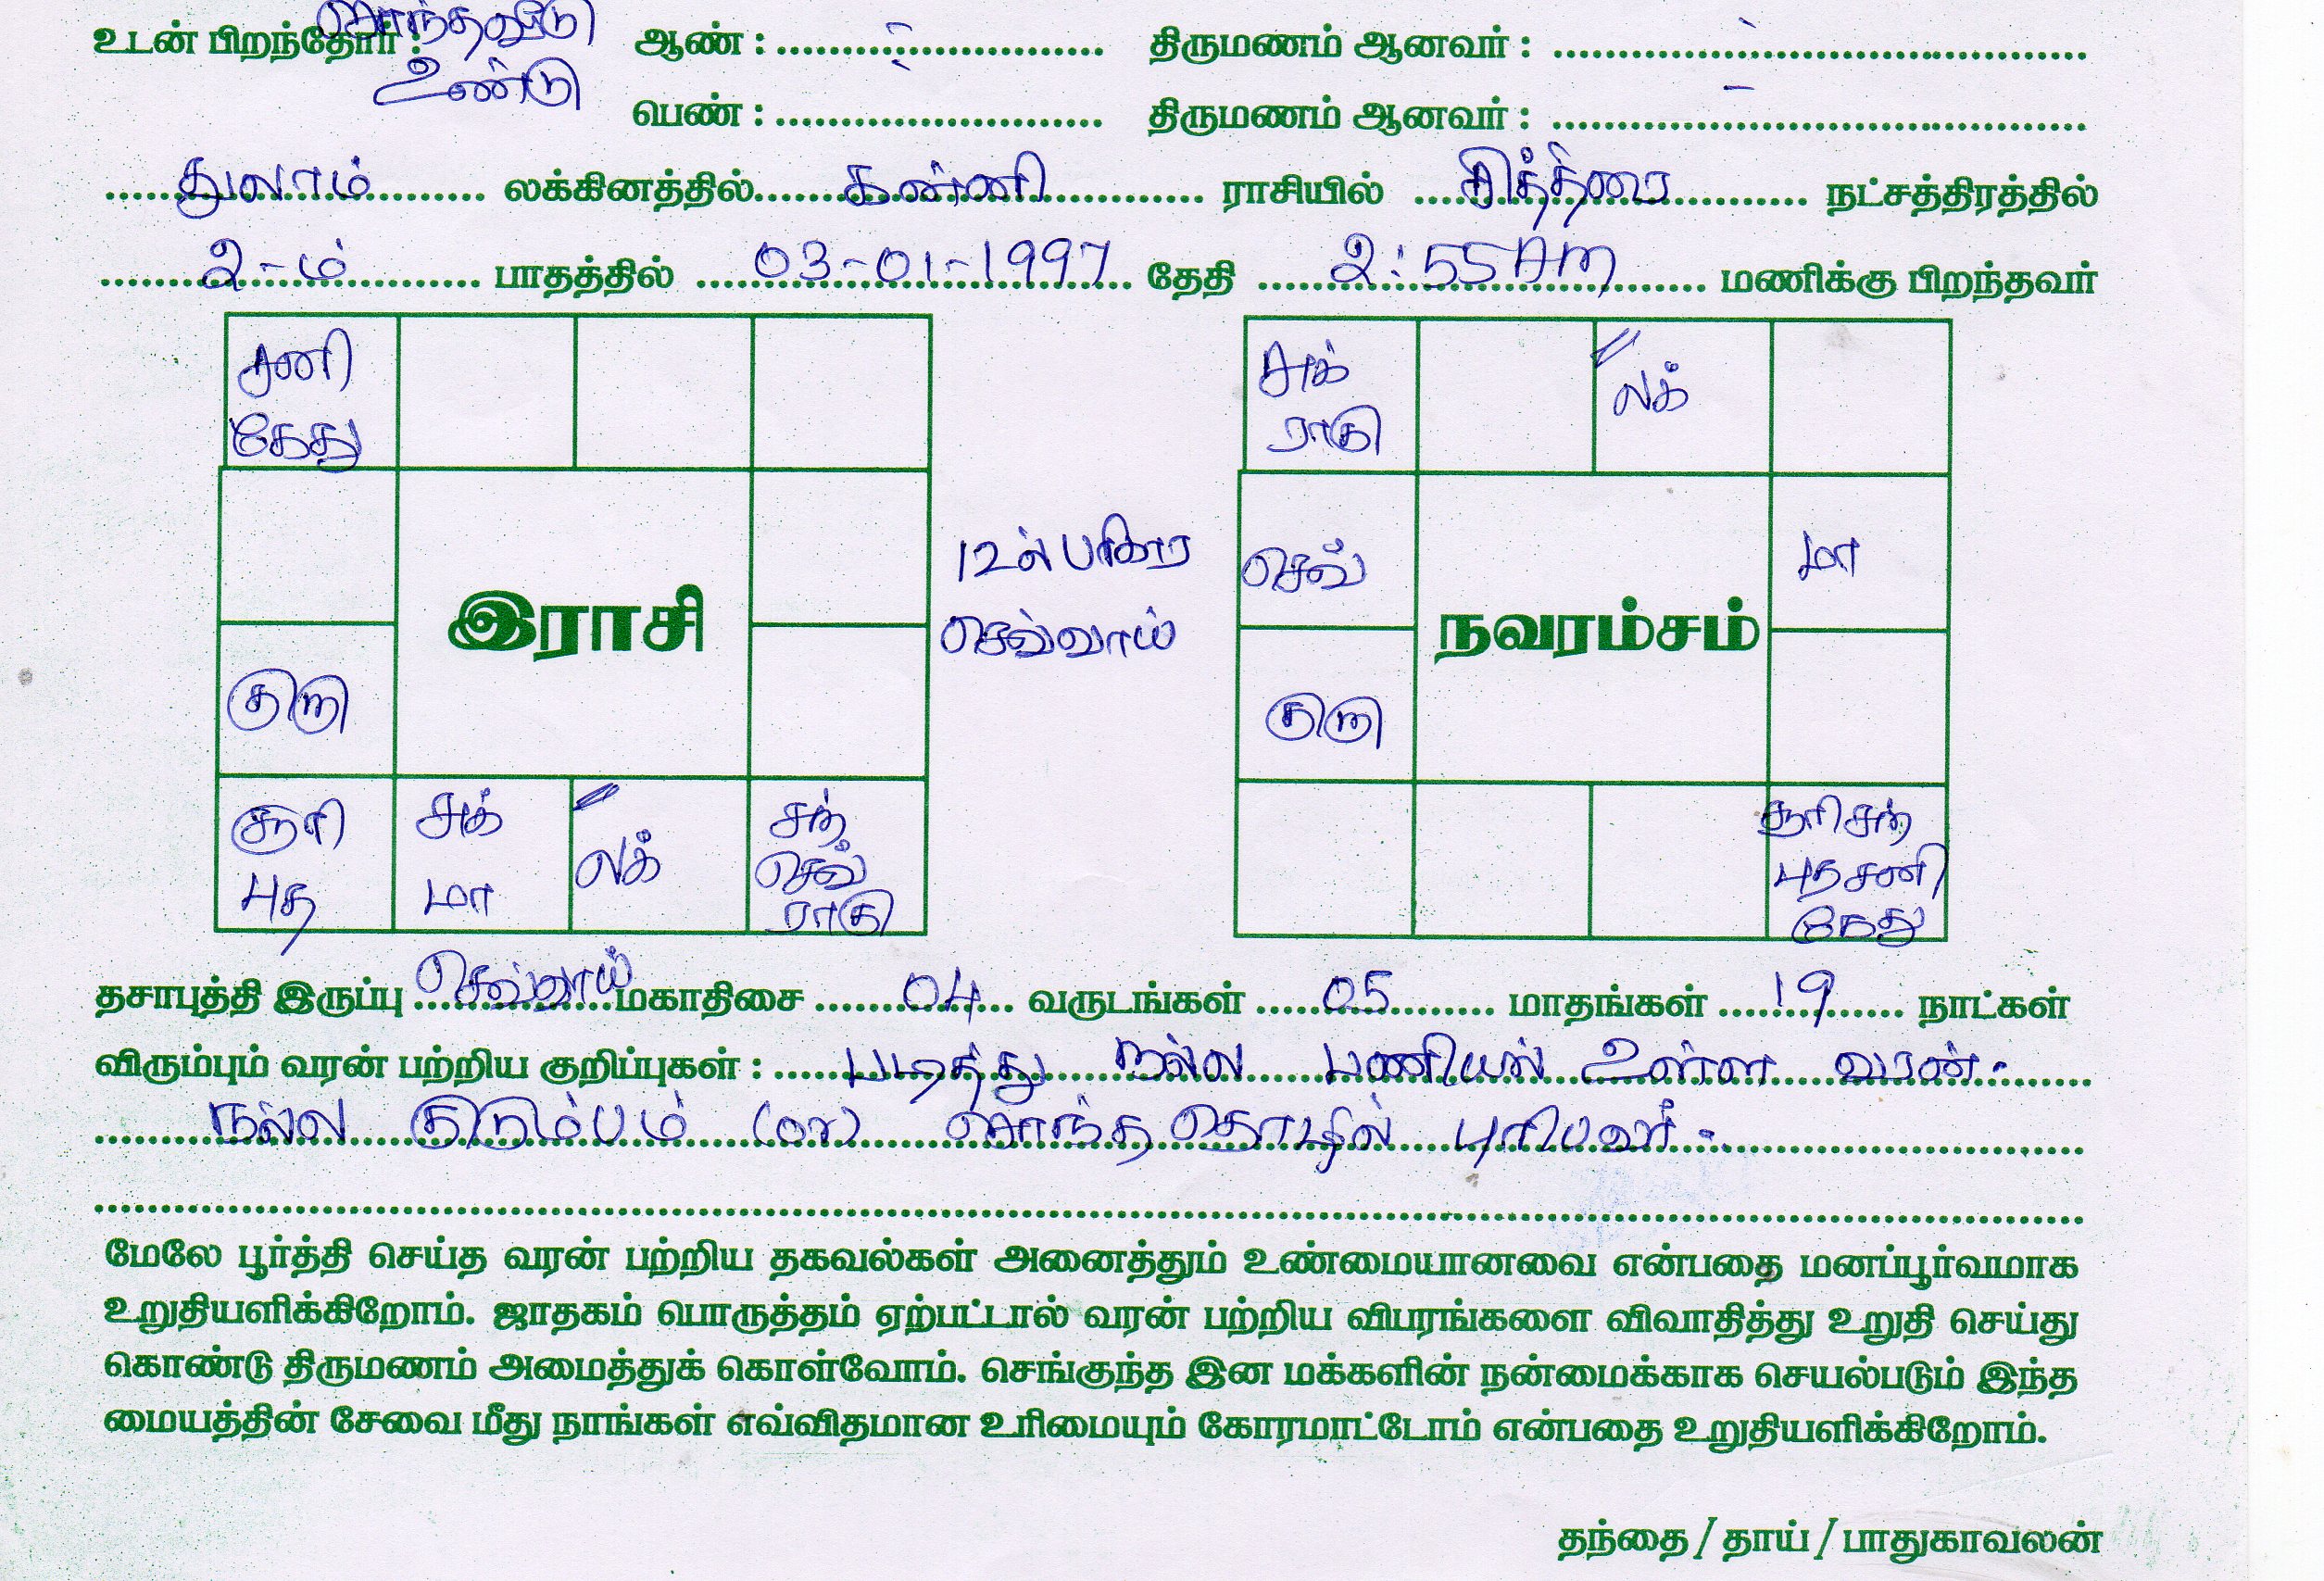 சொந்தவீடு
உடன் பிறந்தோர் : ஆண் : - திருமணம் ஆனவர் : -
உண்டு
பெண் : - திருமணம் ஆனவர் : -
துலாம் லக்கினத்தில் கன்னி ராசியில் சித்திரை நட்சத்திரத்தில்
2-ம் பாதத்தில் 03-01-1997 தேதி 2:55 AM மணிக்கு பிறந்தவர்
சனி
கேது
குரு
சூரி
புத
சுக்
மா
லக்
சந்
செவ்
ராகு
இராசி
12ல் பரிகார
செவ்வாய்
சுக்
ராகு
லக்
செவ்
மா
குரு
சூரி சந்
புத சனி
கேது
நவரம்சம்
தசாபுத்தி இருப்பு செவ்வாய் மகாதிசை 04 வருடங்கள் 05 மாதங்கள் 19 நாட்கள்
விரும்பும் வரன் பற்றிய குறிப்புகள் : படித்து நல்ல பணியில் உள்ள வரன்.
நல்ல குடும்பம் (or) சொந்த தொழில் புரிபவர்.
மேலே பூர்த்தி செய்த வரன் பற்றிய தகவல்கள் அனைத்தும் உண்மையானவை என்பதை மனப்பூர்வமாக
உறுதியளிக்கிறோம். ஜாதகம் பொருத்தம் ஏற்பட்டால் வரன் பற்றிய விபரங்களை விவாதித்து உறுதி செய்து
கொண்டு திருமணம் அமைத்துக் கொள்வோம். செங்குந்த இன மக்களின் நன்மைக்காக செயல்படும் இந்த
மையத்தின் சேவை மீது நாங்கள் எவ்விதமான உரிமையும் கோரமாட்டோம் என்பதை உறுதியளிக்கிறோம்.
தந்தை / தாய் / பாதுகாவலன்